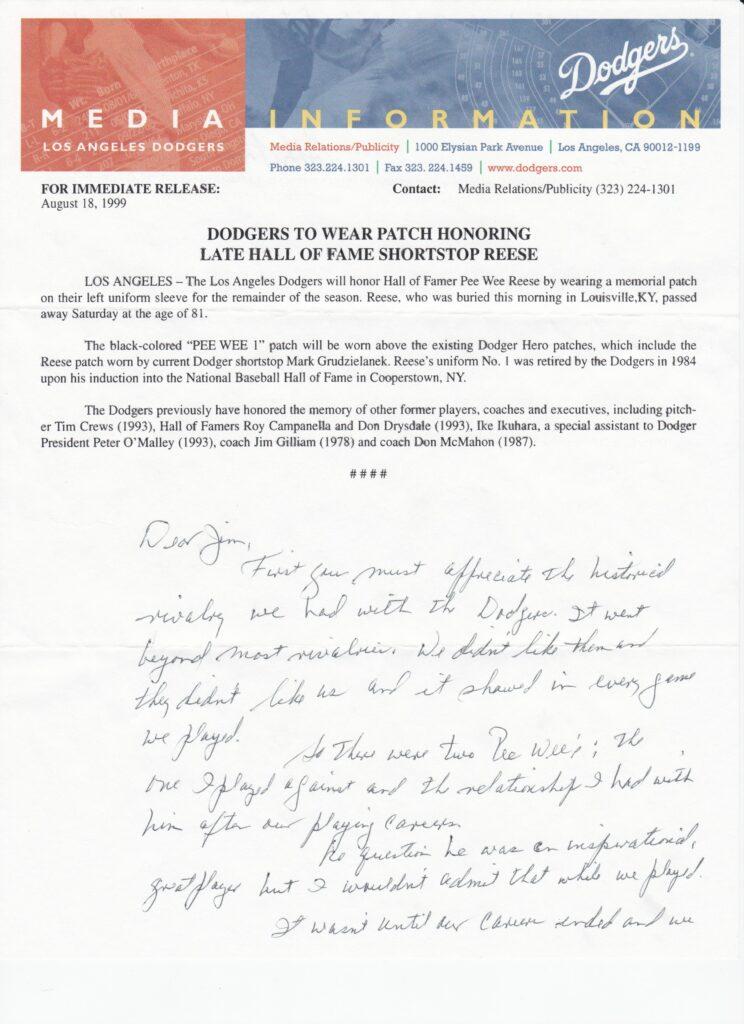 Dodgers
MEDIA INFORMATION
LOS ANGELES DODGERS
Media Relations/Publicity | 1000 Elysian Park Avenue | Los Angeles, CA 90012-1199
Phone 323.224.1301 | Fax 323. 224.1459 | www.dodgers.com
FOR IMMEDIATE RELEASE: Contact: Media Relations/Publicity (323) 224-1301
August 18, 1999
DODGERS TO WEAR PATCH HONORING
LATE HALL OF FAME SHORTSTOP REESE
LOS ANGELES – The Los Angeles Dodgers will honor Hall of Famer Pee Wee Reese by wearing a memorial patch
on their left uniform sleeve for the remainder of the season. Reese, who was buried this morning in Louisville,KY, passed
away Saturday at the age of 81.
The black-colored “PEE WEE 1” patch will be worn above the existing Dodger Hero patches, which include the
Reese patch worn by current Dodger shortstop Mark Grudzielanek. Reese’s uniform No. 1 was retired by the Dodgers in 1984
upon his induction into the National Baseball Hall of Fame in Cooperstown, NY.
The Dodgers previously have honored the memory of other former players, coaches and executives, including pitch-
er Tim Crews (1993), Hall of Famers Roy Campanella and Don Drysdale (1993), Ike Ikuhara, a special assistant to Dodger
President Peter O’Malley (1993), coach Jim Gilliam (1978) and coach Don McMahon (1987).
####
Dear Jim,
First you must appreciate the historical
rivalry we had with the Dodgers. It went
beyond most rivalries. We didn't like them and
they didn't like us and it showed in every game
we played.
So there were two Pee Wee's; the
one I played against and the relationship I had with
him after our playing careers.
No question he was an inspirational,
great player but I wouldn't admit that while we played.
It wasn't until our careers ended and we